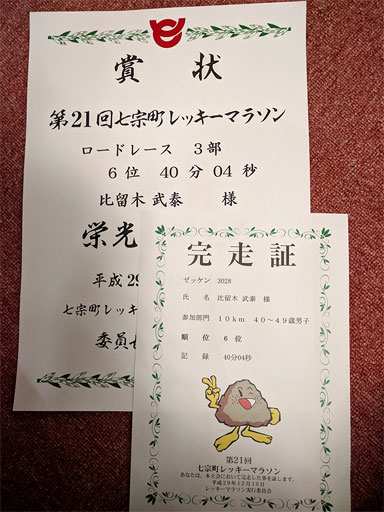 賞状
第21回七宗町レッキーマラソン
ロードレース 3部
6位 40分04秒
比留木 武泰 様
栄光
平成29
七宗町レッキ
委員
完走証
ゼッケン 3028
氏 名 比留木 武泰 様
参加部門 10km 40~49歳男子
順 位 6位
記 録 40分04秒
第21回
七宗町レッキーマラソン
あなたは、本大会において完走した事を証します。
平成29年12月10日
レッキーマラソン実行委員会